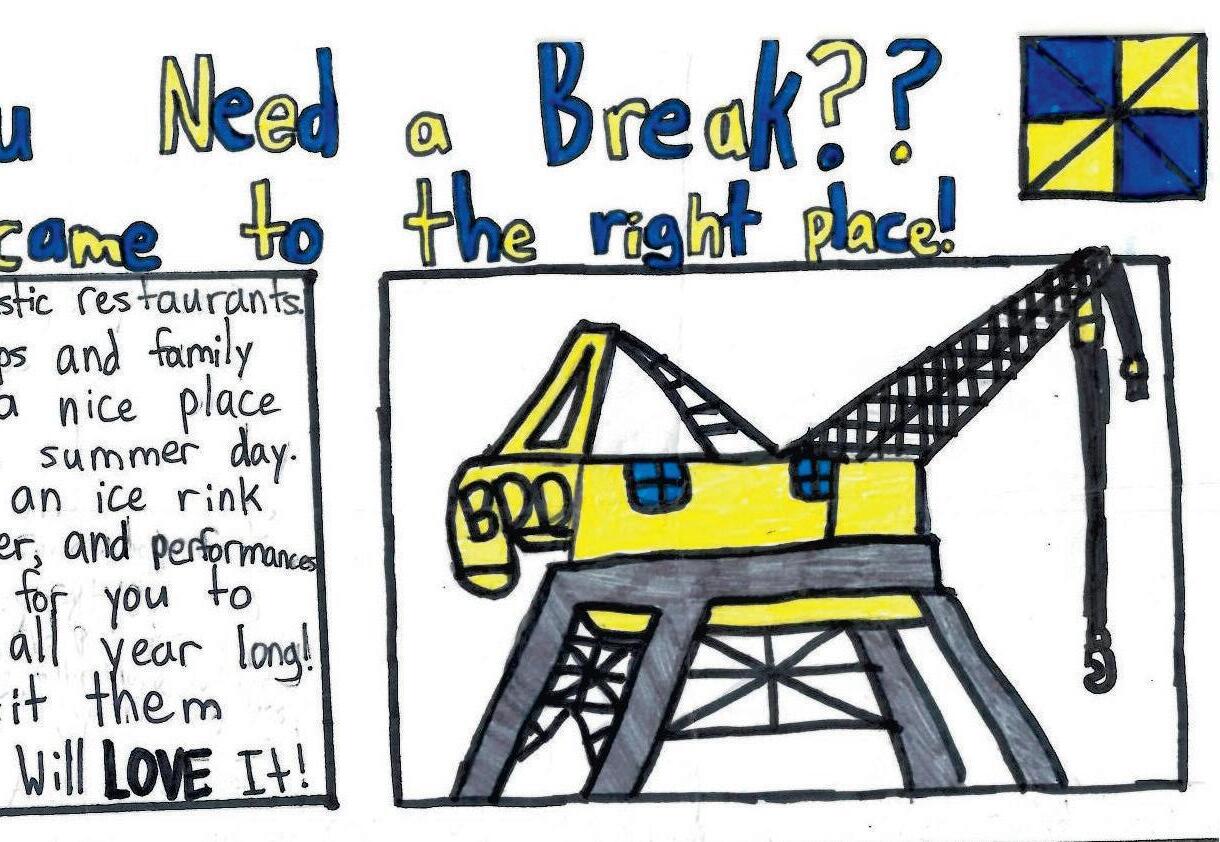 u Need a Break??
came to the right place!
stic restaurants.
ps and family
a nice place
summer day.
an ice rink
er, and performances
for you to
all year long!
it them
Will LOVE It!
BDD